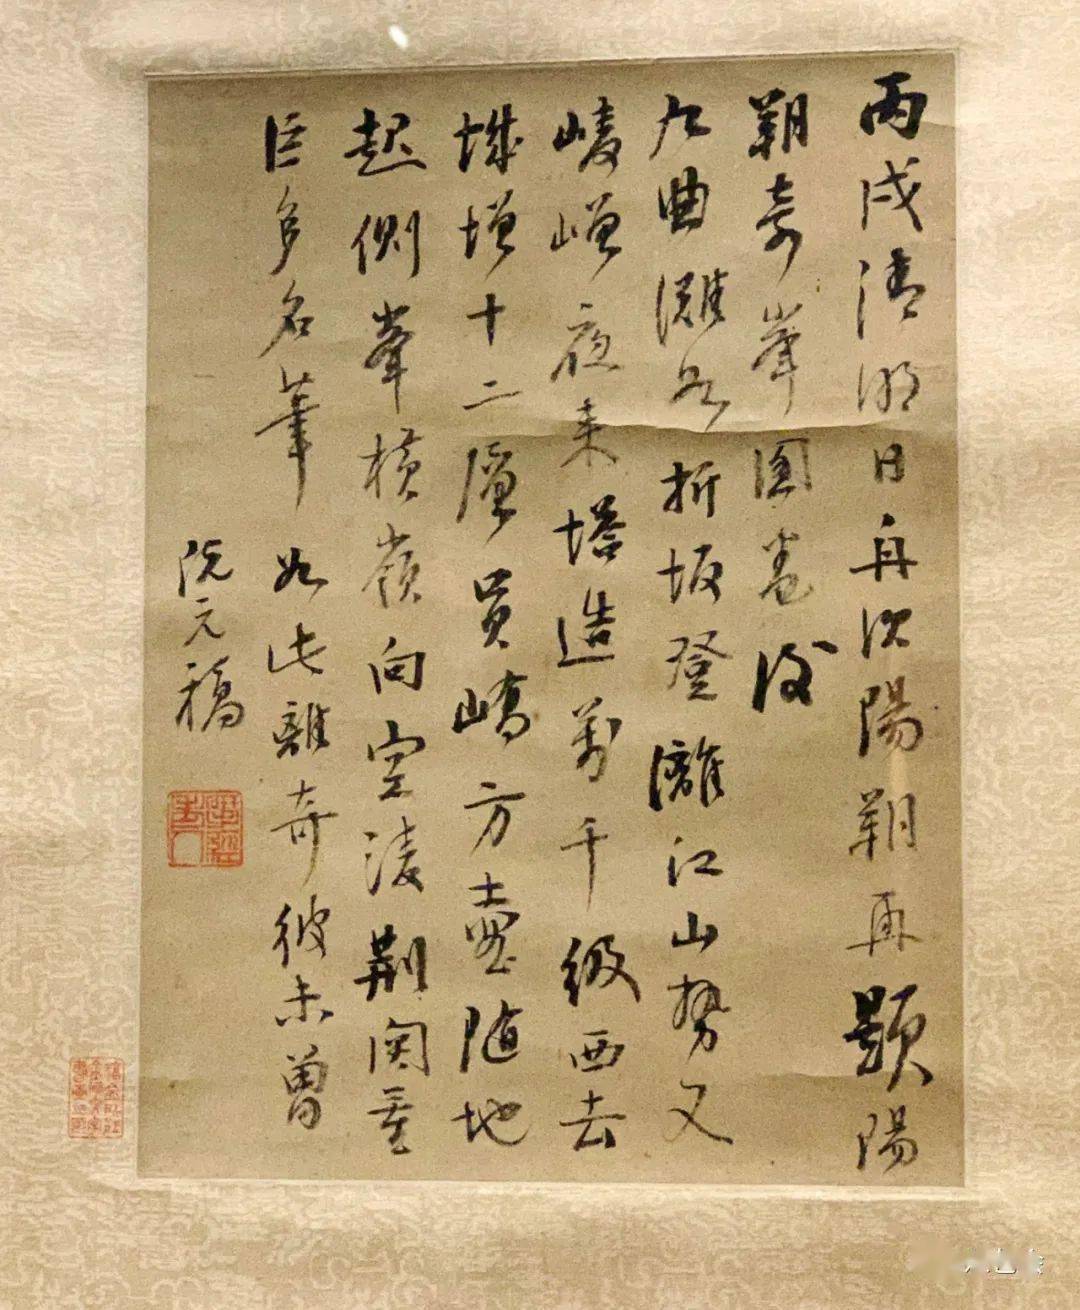 丙戌清明日舟次陽朔再題陽
朔奇峯圖卷後
九曲灘如折坂登灕江山勢又
崚嶒夜来塔造萬千級西去
城增十二層員嶠方壺随地
起側峯橫嶺向空凌荊関董
巨多名筆如此離奇彼未曾
阮元稿